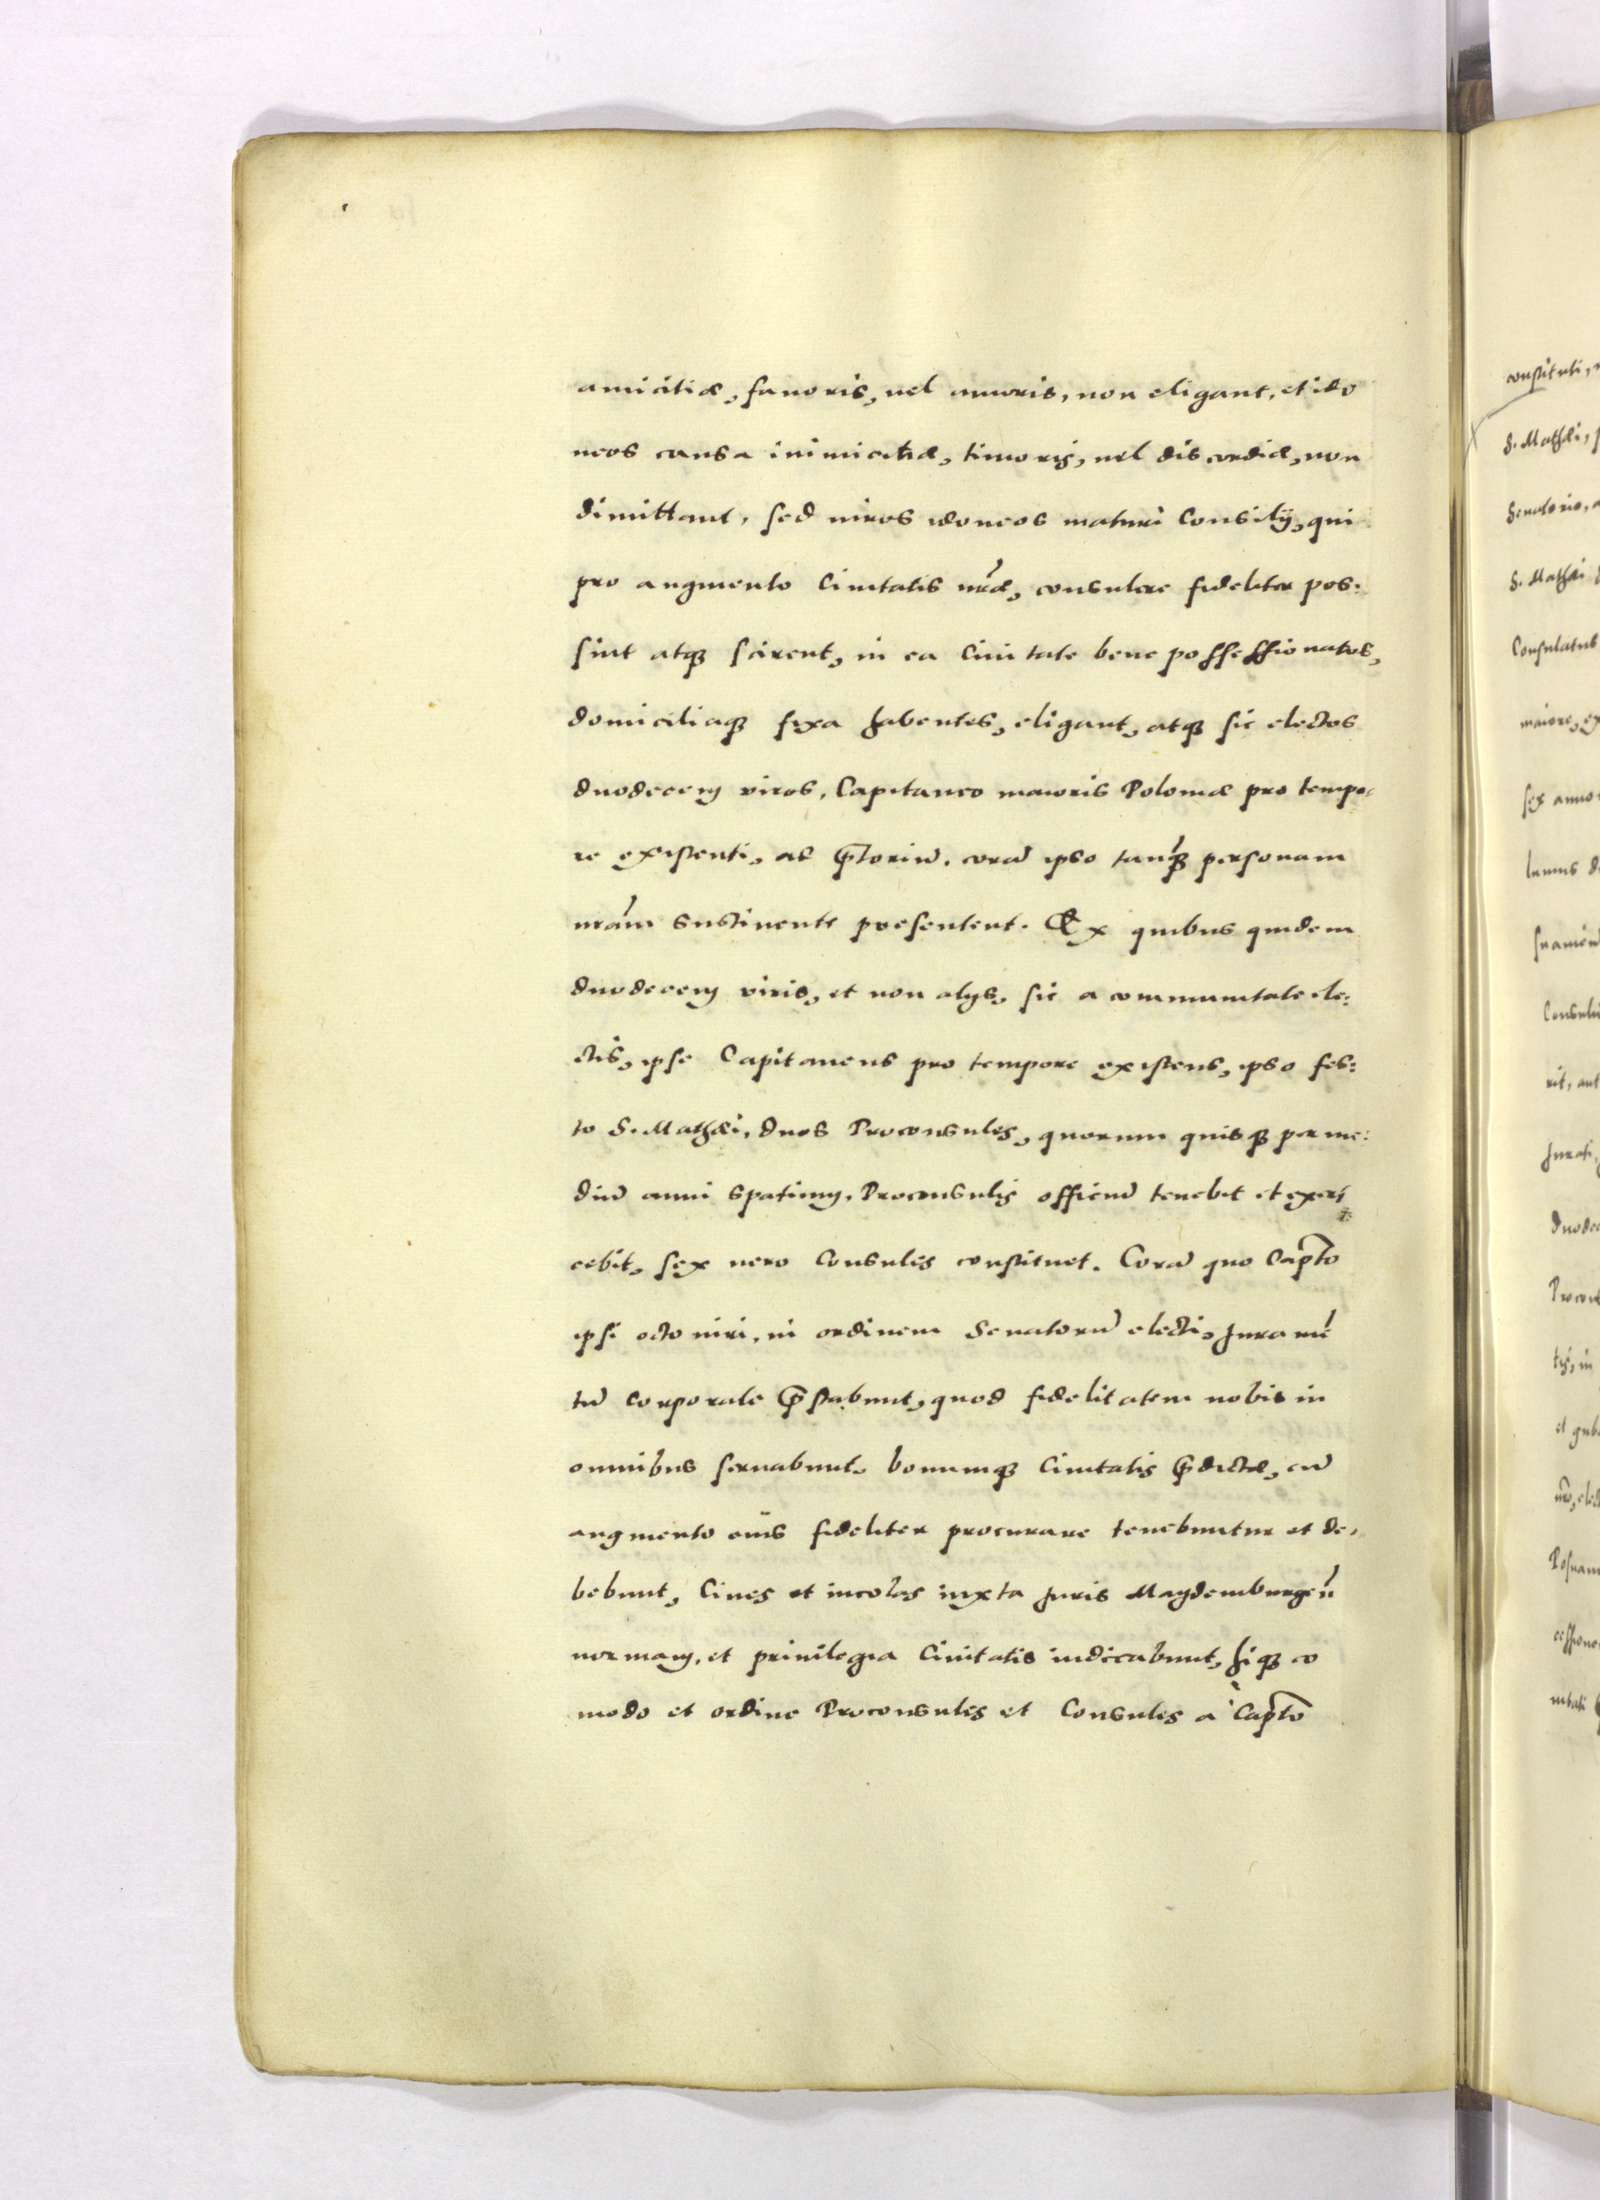 amicitiæ, fauoris, uel amoris, non eligant, et ido
neos causa inimicitiæ, timoris, uel discordiæ, non
dimittant, sed uiros idoneos maturi Consilij, qui
pro augmento Ciuitatis nr̃æ, consulere fideliter pos:
sint atq3 scirent, in ea Ciuitate bene possessionatos,
domiciliaq3 fixa habentes, eligant, atq3 sic electos
duodecem viros, Capitaneo maioris Poloniæ pro tempo:
re existenti, ad p̃toriũ, corã ipso tanq̃3 personam
nrãm sustinente presentent. Ex quibus quidem
duodecem viris, et non alijs, sic a communitate ele:
ctis, ipse Capitaneus pro tempore existens, ipso fes:
to S. Mathæi, duos Proconsules, quorum quisq3 per me:
diũ anni spatium, Proconsulis officiũ tenebit et exer:
cebit, sex uero Consules constituet. Corã quo Capt̃o
ipsi octo uiri, in ordinem Senatorũ electi, Juramẽ
tũ corporale p̃stabunt, quod fidelitatem nobis in
omnibus seruabunt, bonumq3 Ciuitatis p̃dictæ, cũ
augmento eius fideliter procurare tenebuntur et de:
bebunt, Ciues et incolas iuxta Juris Maydemburgeñ
normam, et priuilegia Ciuitatis iudicabunt, hiq3 eo
modo et ordine Proconsules et Consules à Capt̃o
constituti,
S. Mathæi,
Senatorio,
S. Mathæi
Consulatus
maiore, ex